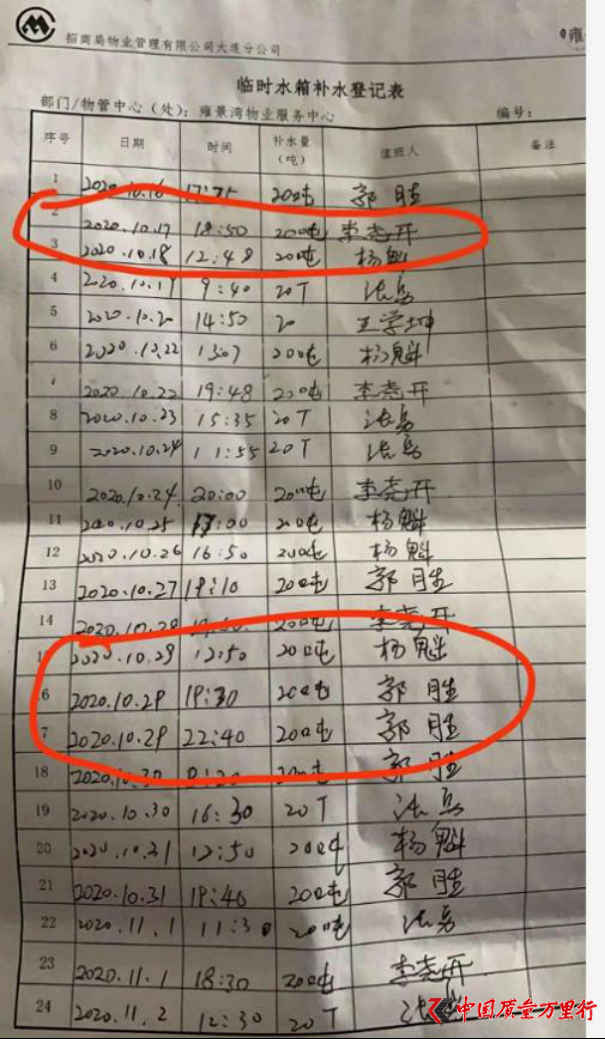 招商局物业管理有限公司大连分公司
雍
临时水箱补水登记表
部门/物管中心（处）：雍景湾物业服务中心 编号：
序号 日期 时间 补水量（吨） 值班人 备注
1 2020.10.16 20吨 郭胜
2 2020.10.17 18:50 20吨 李尧开
3 2020.10.18 12:48 20吨 杨魁
4 2020.10.19 9:40 20T
5 2020.10.20 14:50 20 王学坤
6 2020.10.22 13:07 20吨 杨魁
2020.10.22 19:48 20吨 李尧开
8 2020.10.23 15:35 20T
9 2020.10.24 11:55 20T
10 2020.10.24 20:00 20吨 李尧开
11 2020.10.25 20吨 杨魁
12 2020.10.26 16:50 20吨 杨魁
13 2020.10.27 19:10 20吨 郭胜
14 20吨 李尧开
15 2020.10.29 12:50 20吨 杨魁
6 2020.10.29 19:30 20吨 郭胜
7 2020.10.29 22:40 20吨 郭胜
18 2020.10.30 20吨 郭胜
19 2020.10.30 16:30 20T
20 2020.10.31 12:50 20吨 杨魁
21 2020.10.31 19:40 20吨 郭胜
22 2020.11.1 11:30 20吨
23 2020.11.1 18:30 20吨 李尧开
24 2020.11.2 12:30 20T
中国质量万里行